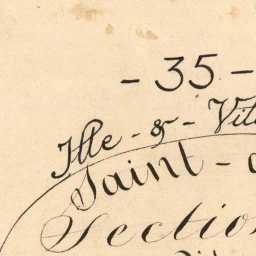 - 35 -
Ille - & - Vil
Saint -
Sectio